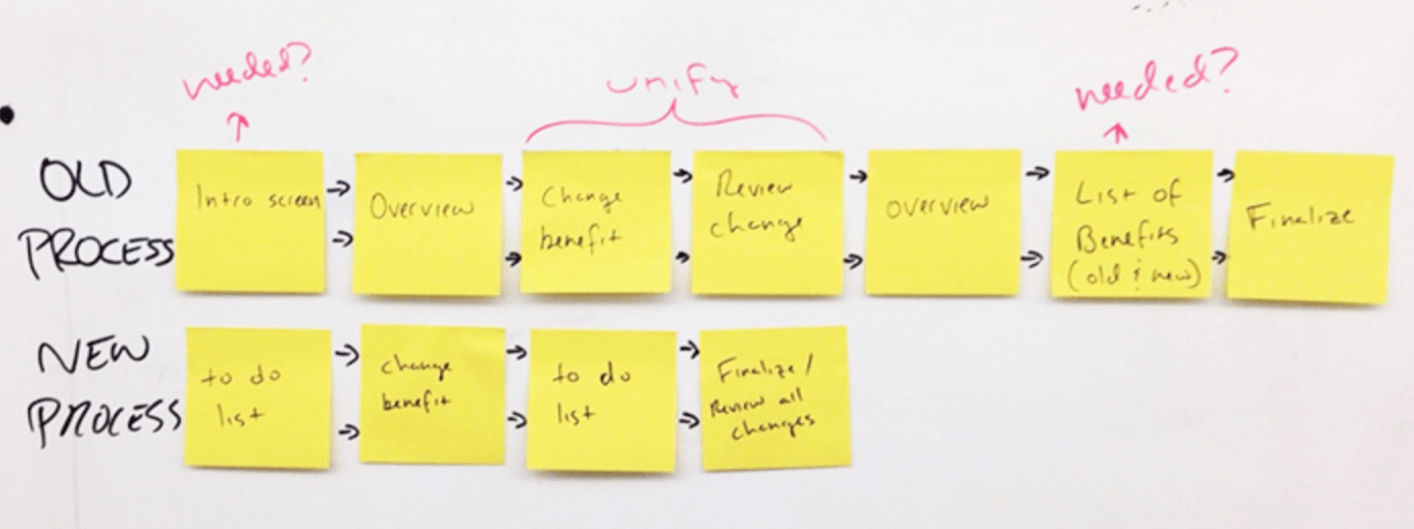 needed?
unify
needed?
OLD
PROCESS
Intro screen
Overview
Change
benefit
Review
change
overview
List of
Benefits
(old & new)
Finalize
NEW
PROCESS
to do
list
change
benefit
to do
list
Finalize /
Review all
changes